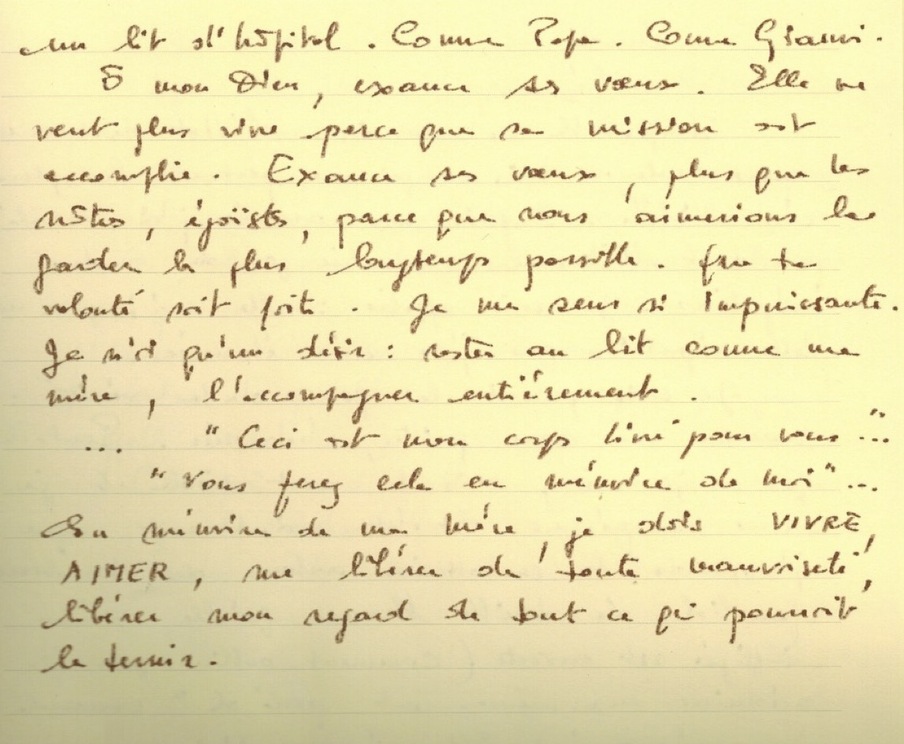 un lit d'hôpital. Comme Papa. Comme Gianni.
Ô mon Dieu, exauce ses vœux. Elle ne
veut plus vivre parce que sa mission est
accomplie. Exauce ses vœux, plus que les
nôtres, égoïstes, parce que nous aimerions la
garder le plus longtemps possible. Que ta
volonté soit faite. Je me sens si impuissante.
Je n'ai qu'un désir : rester au lit comme ma
mère, l'accompagner entièrement.
... "Ceci est mon corps livré pour vous"...
"Vous ferez cela en mémoire de moi"...
En mémoire de ma Mère, je dois VIVRE,
AIMER, me libérer de toute mauvaiseté,
libérer mon regard de tout ce qui pourrait
le ternir.